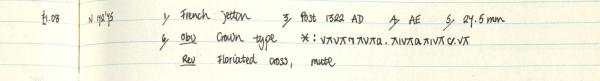 £1.08 N 192'45 1, French jetton 3, Post 1322 AD 4, AE 5, 24.5 mm
6, Obv Crown type
Rev Floriated cross, mute